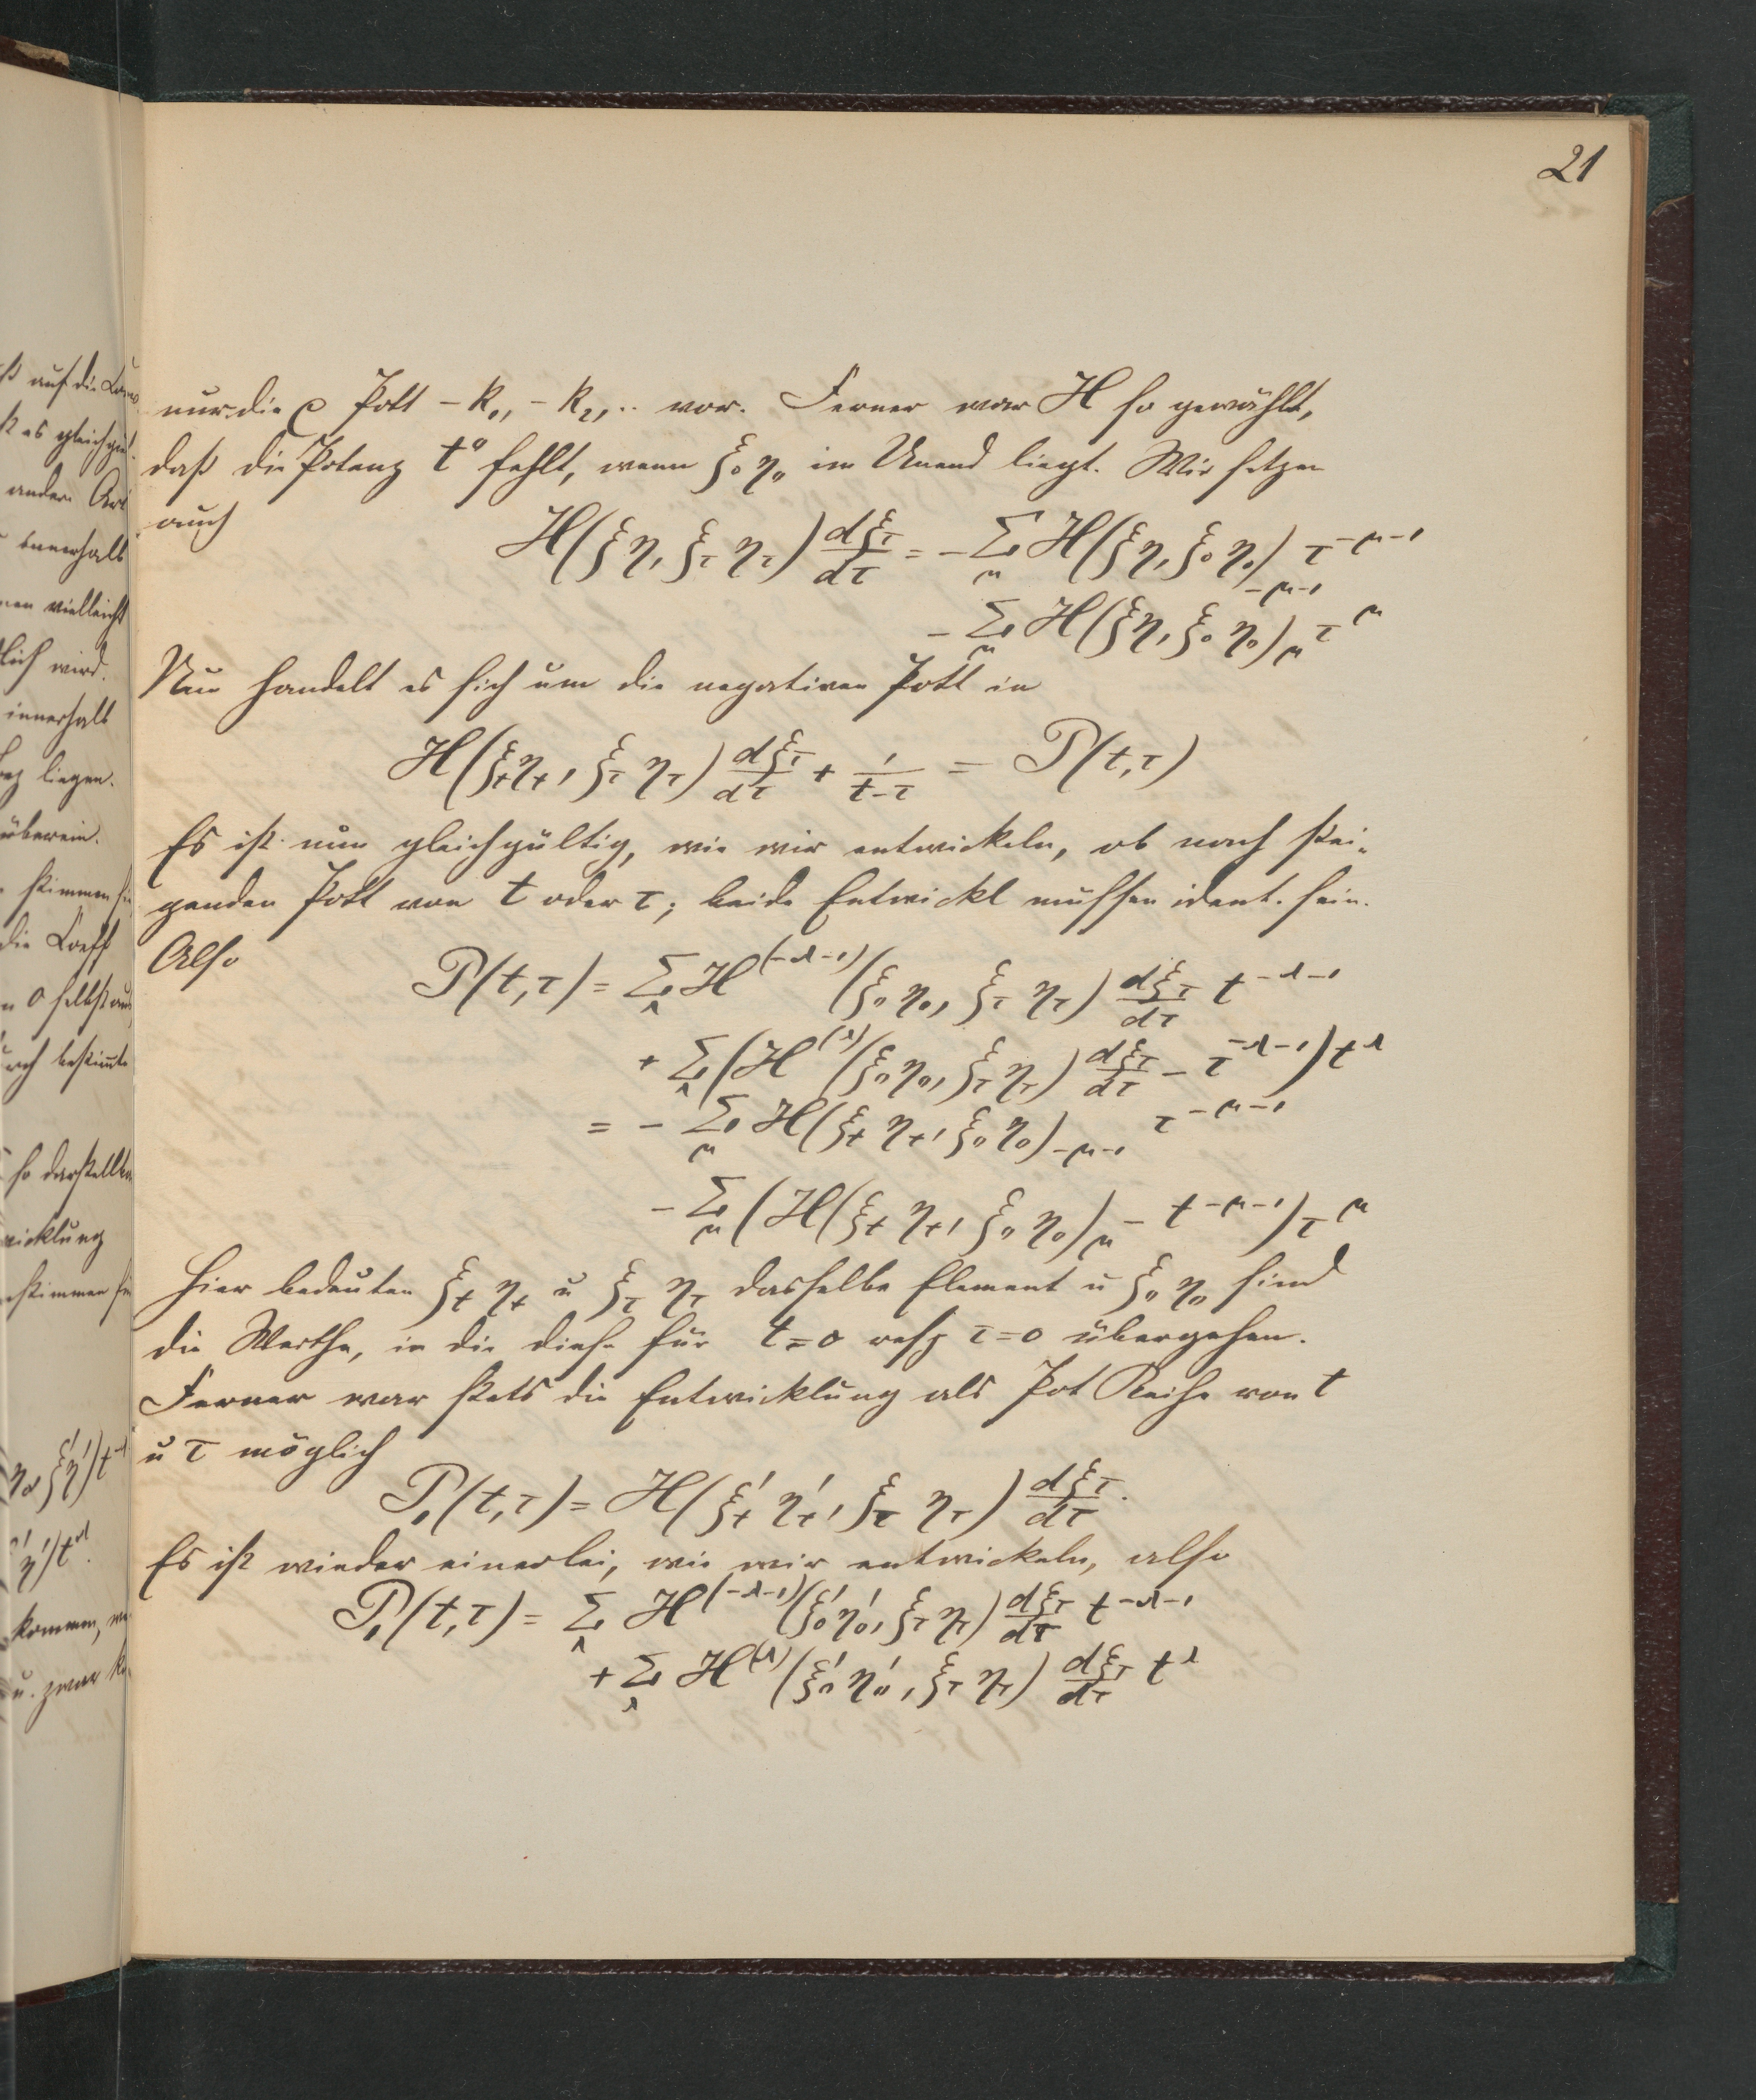 21
nur die ρ Pott − k₁, − k₂, .. vor. Ferner war H so gewählt,
daß die Potenz t⁰ fehlt, wenn ξ₀ η₀ im Unend liegt. Wir setzen
auch
H(ξ η, ξ_τ η_τ) dξ_τ/dτ = − Σ_μ H(ξ η, ξ₀ η₀)_{−μ−1} τ^{−μ−1}
− Σ_μ H(ξ η, ξ₀ η₀)_μ τ^μ
Nun handelt es sich um die negativen Pott in
H(ξ_t η_t, ξ_τ η_τ) dξ_τ/dτ + 1/(t−τ) = P(t,τ)
Es ist nun gleichgültig, wie wir entwickeln, ob nach stei-
genden Pott von t oder τ; beide Entwickl müssen ident. sein.
Also
P(t,τ) = Σ_λ H^{(−λ−1)}(ξ₀ η₀, ξ_τ η_τ) dξ_τ/dτ t^{−λ−1}
+ Σ_λ (H^{(λ)}(ξ₀ η₀, ξ_τ η_τ) dξ_τ/dτ − τ^{−λ−1}) t^λ
= − Σ_μ H(ξ_t η_t, ξ₀ η₀)_{−μ−1} τ^{−μ−1}
− Σ_μ (H(ξ_t η_t, ξ₀ η₀)_μ − t^{−μ−1}) τ^μ
Hier bedeuten ξ_t η_t u ξ_τ η_τ dasselbe Element u ξ₀ η₀ sind
die Werthe, in die diese für t=0 resp τ=0 übergehen.
Ferner war stets die Entwicklung als Pot Reihe von t
u τ möglich
P₁(t,τ) = H(ξ'_t η'_t, ξ_τ η_τ) dξ_τ/dτ.
Es ist wieder einerlei, wie wir entwickeln, also
P₁(t,τ) = Σ_λ H^{(−λ−1)}(ξ'₀ η'₀, ξ_τ η_τ) dξ_τ/dτ t^{−λ−1}
+ Σ_λ H^{(λ)}(ξ'₀ η'₀, ξ_τ η_τ) dξ_τ/dτ t^λ